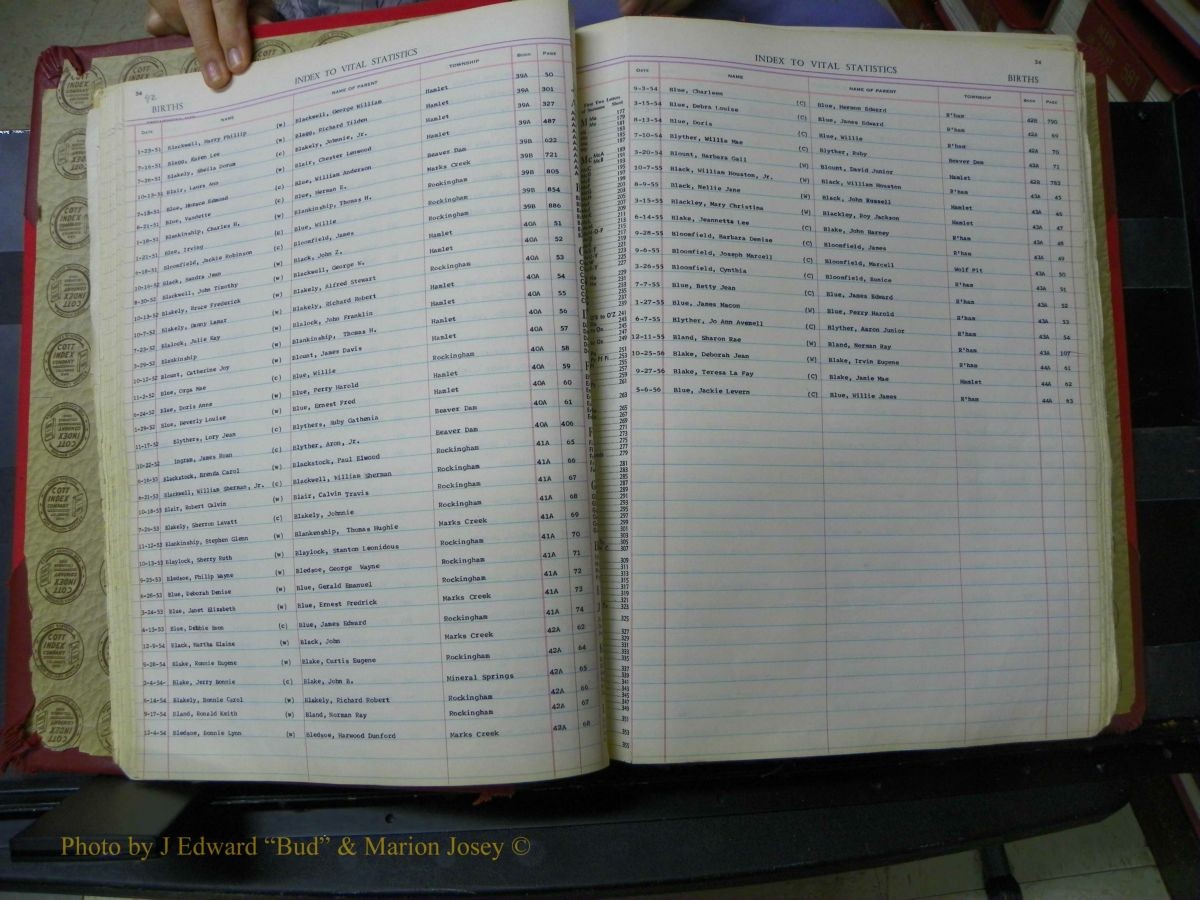 34
92
INDEX TO VITAL STATISTICS
BIRTHS
DATE NAME NAME OF PARENT TOWNSHIP BOOK PAGE
1-23-51 Blackwell, Harry Phillip (w) Blackwell, George William Hamlet 39A 50
7-16-51 Blagg, Karen Lee (c) Blagg, Richard Tilden Hamlet 39A 301
7-26-51 Blakely, Sheila Dorum (w) Blakely, Johnnie, Jr. Hamlet 39A 327
10-13-51 Blair, Laura Ann (c) Blair, Chester Lenwood Hamlet 39A 487
7-18-51 Blue, Horace Edmund (c) Blue, William Anderson Beaver Dam 39B 622
8-21-51 Blue, Vandette (c) Blue, Herman E. Marks Creek 39B 721
1-18-51 Blankinship, Charles H. (w) Blankinship, Thomas H. Rockingham 39B 805
1-21-51 Blue, Irving Blue, Willie Rockingham 39B 854
9-18-51 Bloomfield, Jackie Robinson (c) Bloomfield, James Rockingham 39B 886
10-14-52 Black, Sandra Jean (w) Black, John Z. Hamlet 40A 51
8-30-52 Blackwell, John Timothy (w) Blackwell, George W. Rockingham 40A 52
10-13-52 Blakely, Bruce Frederick (w) Blakely, Alfred Stewart Hamlet 40A 53
10-7-52 Blakely, Danny Lamar (w) Blakely, Richard Robert Hamlet 40A 54
7-23-52 Blalock, Julie Kay (w) Blalock, John Franklin Hamlet 40A 55
3-29-52 Blankinship (w) Blankinship, Thomas H. Hamlet 40A 57
10-12-52 Blount, Catherine Joy (w) Blount, James Davis Rockingham 40A 58
11-2-52 Blue, Orga Mae (c) Blue, Willie Hamlet 40A 59
6-24-52 Blue, Doris Anne (w) Blue, Perry Harold Hamlet 40A 60
1-29-52 Blue, Beverly Louise (w) Blue, Ernest Fred Beaver Dam 40A 61
11-17-52 Blythers, Lory Jean (c) Blythers, Ruby Cathenia Beaver Dam 40A 406
10-22-52 Ingram, James Roan (c) Blyther, Aron, Jr. Rockingham 41A 65
6-16-53 Blackstock, Brenda Carol (w) Blackstock, Paul Elwood Rockingham 41A 66
8-21-53 Blackwell, William Sherman, Jr. (c) Blackwell, William Sherman Rockingham 41A 67
10-18-53 Blair, Robert Calvin (w) Blair, Calvin Travis Rockingham 41A 68
7-24-53 Blakely, Sherron Lavatt (c) Blakely, Johnnie Marks Creek 41A 69
11-12-53 Blankinship, Stephen Glenn (w) Blankenship, Thomas Hughie Rockingham 41A 70
10-13-53 Blaylock, Sherry Ruth (w) Blaylock, Stanton Leonidous Rockingham 41A 71
9-23-53 Bledsoe, Philip Wayne (w) Bledsoe, George Wayne Rockingham 41A 72
6-28-53 Blue, Deborah Denise (w) Blue, Gerald Emanuel Marks Creek 41A 73
3-24-53 Blue, Janet Elizabeth (w) Blue, Ernest Fredrick Rockingham 41A 74
4-13-53 Blue, Debbie Dson (c) Blue, James Edward Marks Creek 42A 62
12-9-54 Black, Martha Elaine (w) Black, John Rockingham 42A 64
5-28-54 Blake, Ronnie Eugene (w) Blake, Curtis Eugene Mineral Springs 42A 65
3-4-54 Blake, Jerry Bonnie (c) Blake, John B. Rockingham 42A 66
6-14-54 Blakely, Bonnie Carol (w) Blakely, Richard Robert Rockingham 42A 67
9-17-54 Bland, Ronald Keith (w) Bland, Norman Ray Marks Creek 42A 68
12-4-54 Bledsoe, Bonnie Lynn (w) Bledsoe, Harwood Dunford
34
INDEX TO VITAL STATISTICS
BIRTHS
DATE NAME NAME OF PARENT TOWNSHIP BOOK PAGE
9-3-54 Blue, Charleen (C) Blue, Hermon Edward R'ham 42B 790
3-15-54 Blue, Debra Louise (C) Blue, James Edward R'ham 42A 69
8-13-54 Blue, Doris (C) Blue, Willie R'ham 42A 70
7-10-54 Blyther, Willie Mae (C) Blyther, Ruby Beaver Dam 42A 71
3-20-54 Blount, Barbara Gail (W) Blount, David Junior Hamlet 42B 783
10-7-55 Black, William Houston, Jr. (W) Black, William Houston R'ham 43A 45
8-9-55 Black, Nellie Jane (W) Black, John Russell Hamlet 43A 46
3-15-55 Blackley, Mary Christina (W) Blackley, Roy Jackson Hamlet 43A 47
6-14-55 Blake, Jeannetta Lee (C) Blake, John Harney R'ham 43A 48
9-28-55 Bloomfield, Barbara Denise (C) Bloomfield, James R'ham 43A 49
9-6-55 Bloomfield, Joseph Marcell (C) Bloomfield, Marcell Wolf Pit 43A 50
3-26-55 Bloomfield, Cynthia (C) Bloomfield, Eunice R'ham 43A 51
7-7-55 Blue, Betty Jean (C) Blue, James Edward R'ham 43A 52
1-27-55 Blue, James Macon (W) Blue, Perry Harold R'ham 43A 53
6-7-55 Blyther, Jo Ann Avemell (C) Blyther, Aaron Junior R'ham 43A 54
12-11-55 Bland, Sharon Rae (W) Bland, Norman Ray R'ham 43A 107
10-25-56 Blake, Deborah Jean (W) Blake, Irvin Eugene R'ham 44A 61
9-27-56 Blake, Teresa La Fay (C) Blake, Janie Mae Hamlet 44A 62
5-6-56 Blue, Jackie Levern (C) Blue, Willie James R'ham 44A 63
COTT INDEX COMPANY
Photo by J Edward “Bud” & Marion Josey ©